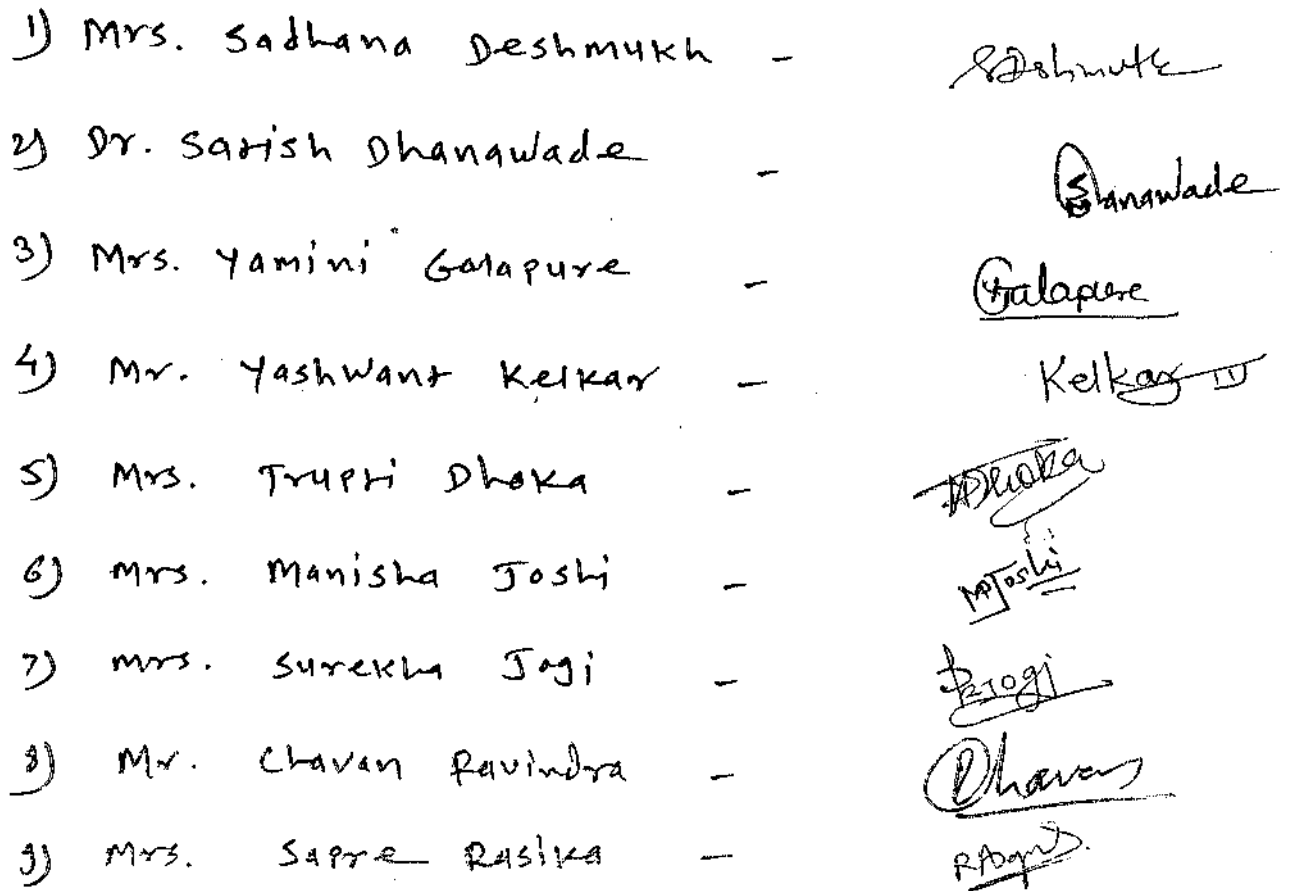 1) Mrs. Sadhana Deshmukh - SDshmukh
2) Dr. Satish Dhanawade - Dhanawade
3) Mrs. Yamini Galapure - Galapure
4) Mr. Yashwant Kelkar - Kelkar
5) Mrs. Trupti Dhoka - Dhoka
6) Mrs. Manisha Joshi - MPJoshi
7) Mrs. Surekha Jogi - Jogi
8) Mr. Chavan Ravindra - Chavan
9) Mrs. Sapre Rasika -